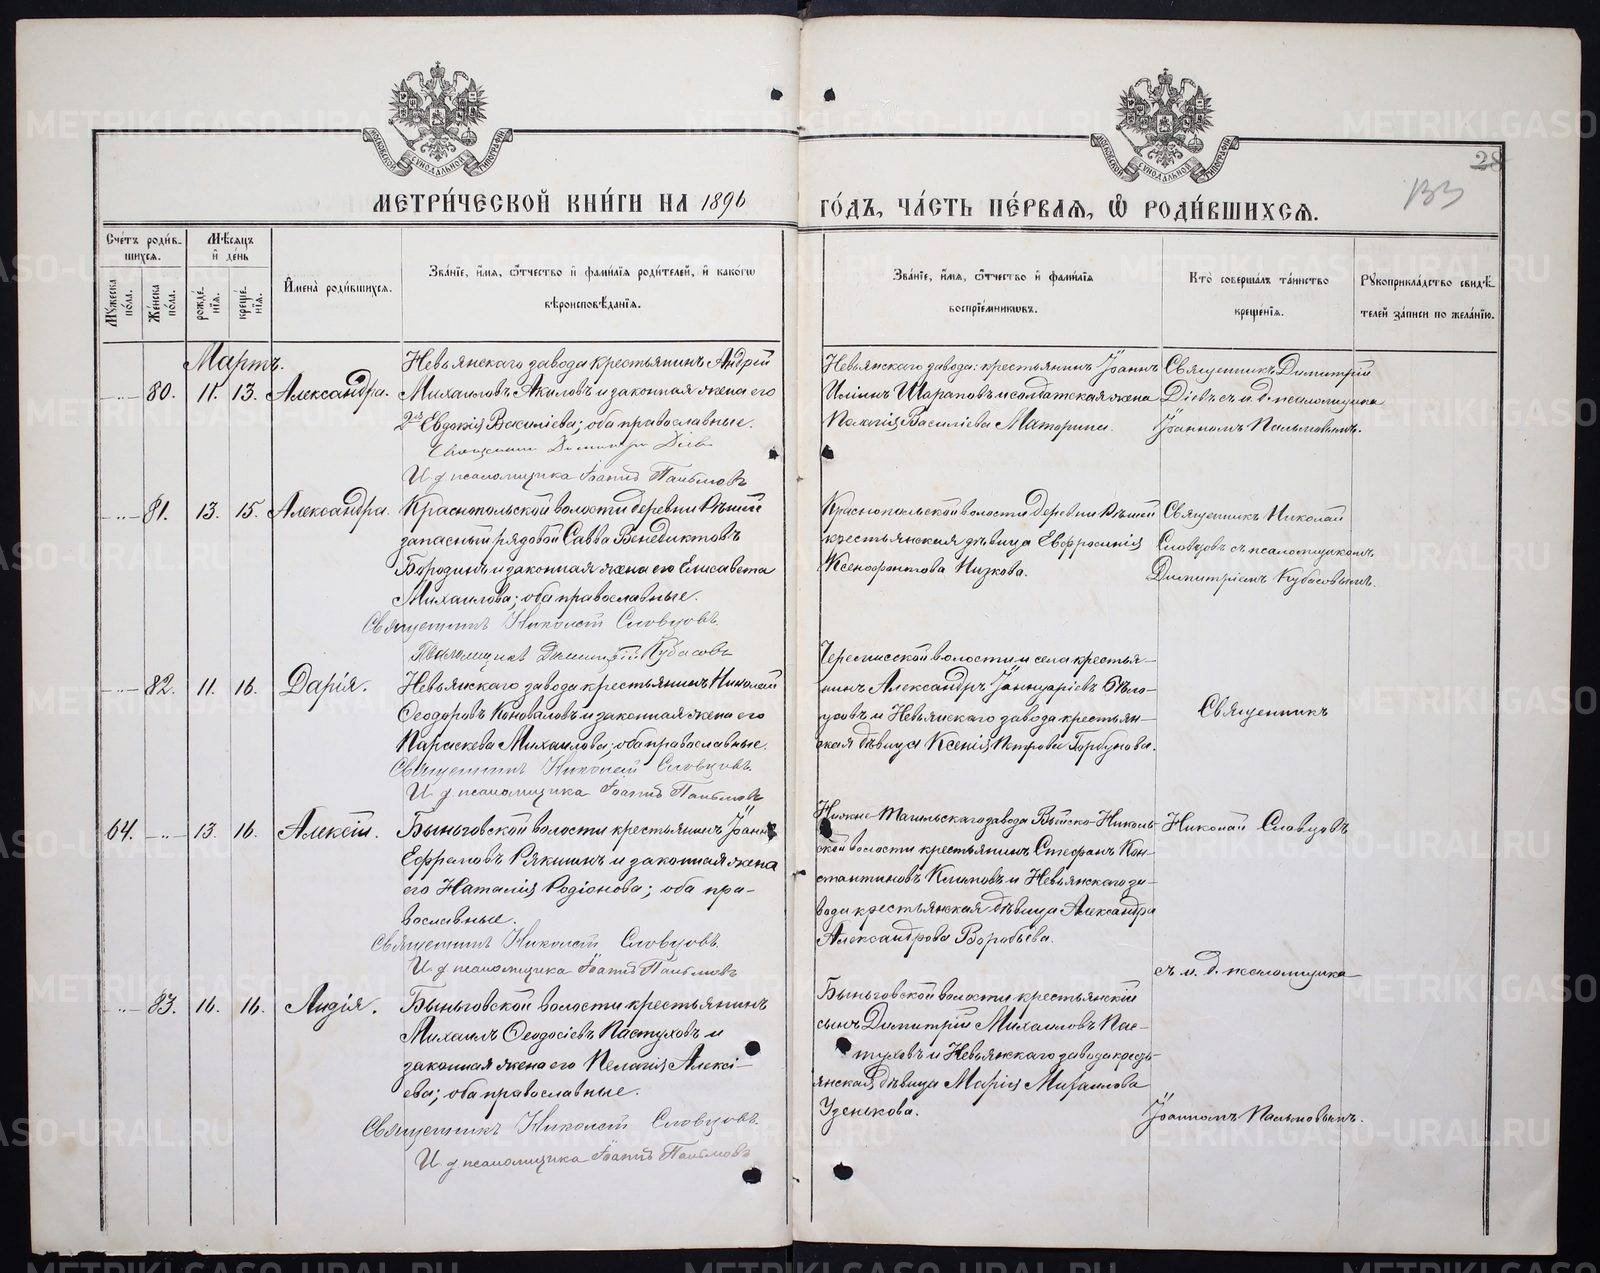 МЕТРИ́ЧЕСКОЙ КНИ́ГИ НА 1896
ГО́ДЪ, ЧА́СТЬ ПЕ́РВАЯ, Ѽ РОДИ́ВШИХСЯ.
28
133
Сче́тъ роди́в-
шихся.
Мужеска по́ла.
Же́нска по́ла.
Мѣ́сяцъ и́ де́нь
рожде́-нія.
креще́-нія.
И҆мена̀ роди́вшихся.
Зва́нїе, и҆́мя, ѻ҆́тчество и҆ фами́лїя роди́телей, и҆ како́гѡ
вѣроисповѣ́данїя.
Зва́нїе, и҆́мя, ѻ҆́тчество и҆ фами́лїя
воспрїе́мникѡвъ.
Кто̀ соверша́лъ та́инство
креще́нїя.
Рꙋкоприкла́дство свидѣ́-
телей за́писи по жела́нїю.
Мартъ.
80. 11. 13. Александра.
Невьянскаго завода крестьянинъ Андрей
Михаиловъ Акиловъ и законная жена его
Евдокія Василіева; оба православные.
Священникъ Димитрій Діевъ
И д псаломщика Іоаннъ Пальмовъ
Невьянскаго завода: крестьянинъ Іоаннъ
Иліинъ Шараповъ и солдатская жена
Пелагія Василіева Маторина.
Священникъ Димитрій
Діевъ съ и. д. псаломщика
Іоанномъ Пальмовымъ.
81. 13. 15. Александра.
Краснопольской волости деревни Рѣшни
запасный рядовой Савва Венедиктовъ
Бородинъ и законная жена его Елисавета
Михаилова; оба православные.
Священникъ Николай Словцовъ.
Псаломщикъ Димитрій Кубасовъ
Краснопольской волости деревни Рѣшни
крестьянская дѣвица Евфросинія
Ксенофонтова Низкова.
Священникъ Николай
Словцовъ съ псаломщикомъ
Димитріемъ Кубасовымъ.
82. 11. 16. Дарія.
Невьянскаго завода крестьянинъ Николай
Ѳеодоровъ Коноваловъ и законная жена его
Параскева Михаилова; оба православные.
Священникъ Николай Словцовъ.
И д псаломщика Іоаннъ Пальмовъ
Черемисской волости и села крестья-
нинъ Александръ Іаннуаріевъ Бѣло-
усовъ и Невьянскаго завода крестьян-
ская дѣвица Ксенія Петрова Горбунова.
Священникъ
64. 13. 16. Алексій.
Быньговской волости крестьянинъ Іоаннъ
Ефремовъ Рякшинъ и законная жена
его Наталія Родіонова; оба пра-
вославные.
Священникъ Николай Словцовъ.
И д псаломщика Іоаннъ Пальмовъ
Нижне-Тагильскаго завода Выйско-Николь-
ской волости крестьянинъ Стефанъ Кон-
стантиновъ Климовъ и Невьянскаго за-
вода крестьянская дѣвица Александра
Александрова Воробьева.
Николай Словцовъ
съ и. д. псаломщика
83. 16. 16. Лидія.
Быньговской волости крестьянинъ
Михаилъ Ѳеодосіевъ Пастуховъ и
законная жена его Пелагія Алексі-
ева; оба православные.
Священникъ Николай Словцовъ.
И д псаломщика Іоаннъ Пальмовъ
Быньговской волости крестьянскій
сынъ Димитрій Михаиловъ Пас-
туховъ и Невьянскаго завода кресть-
янская дѣвица Марія Михаилова
Уденкова.
Іоанномъ Пальмовымъ.
METRIKI.GASO-URAL.RU